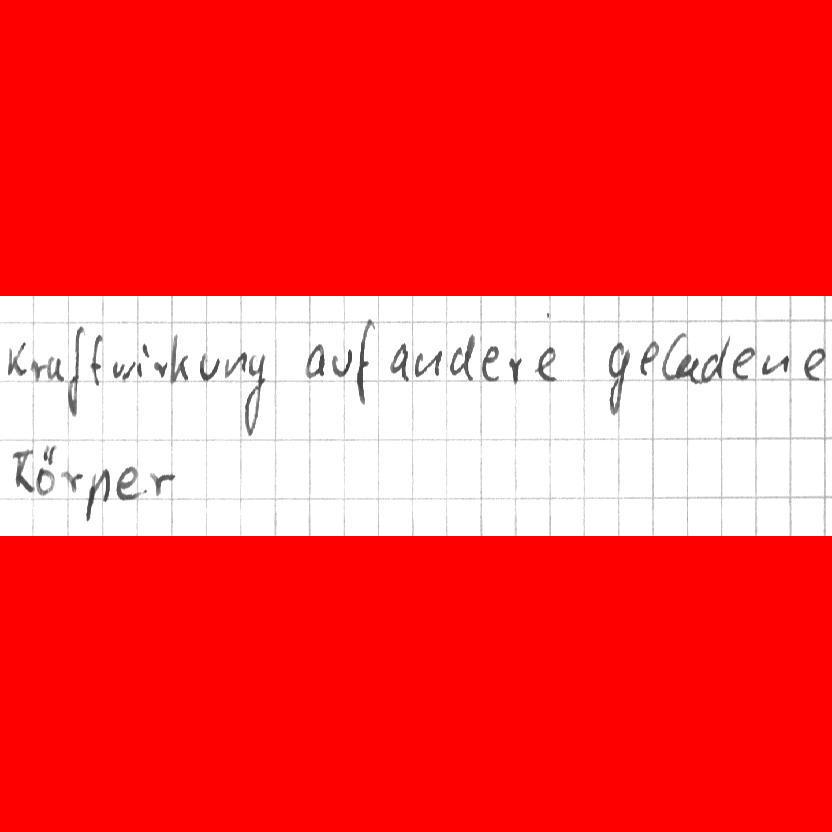 Kraftwirkung auf andere geladene
Körper